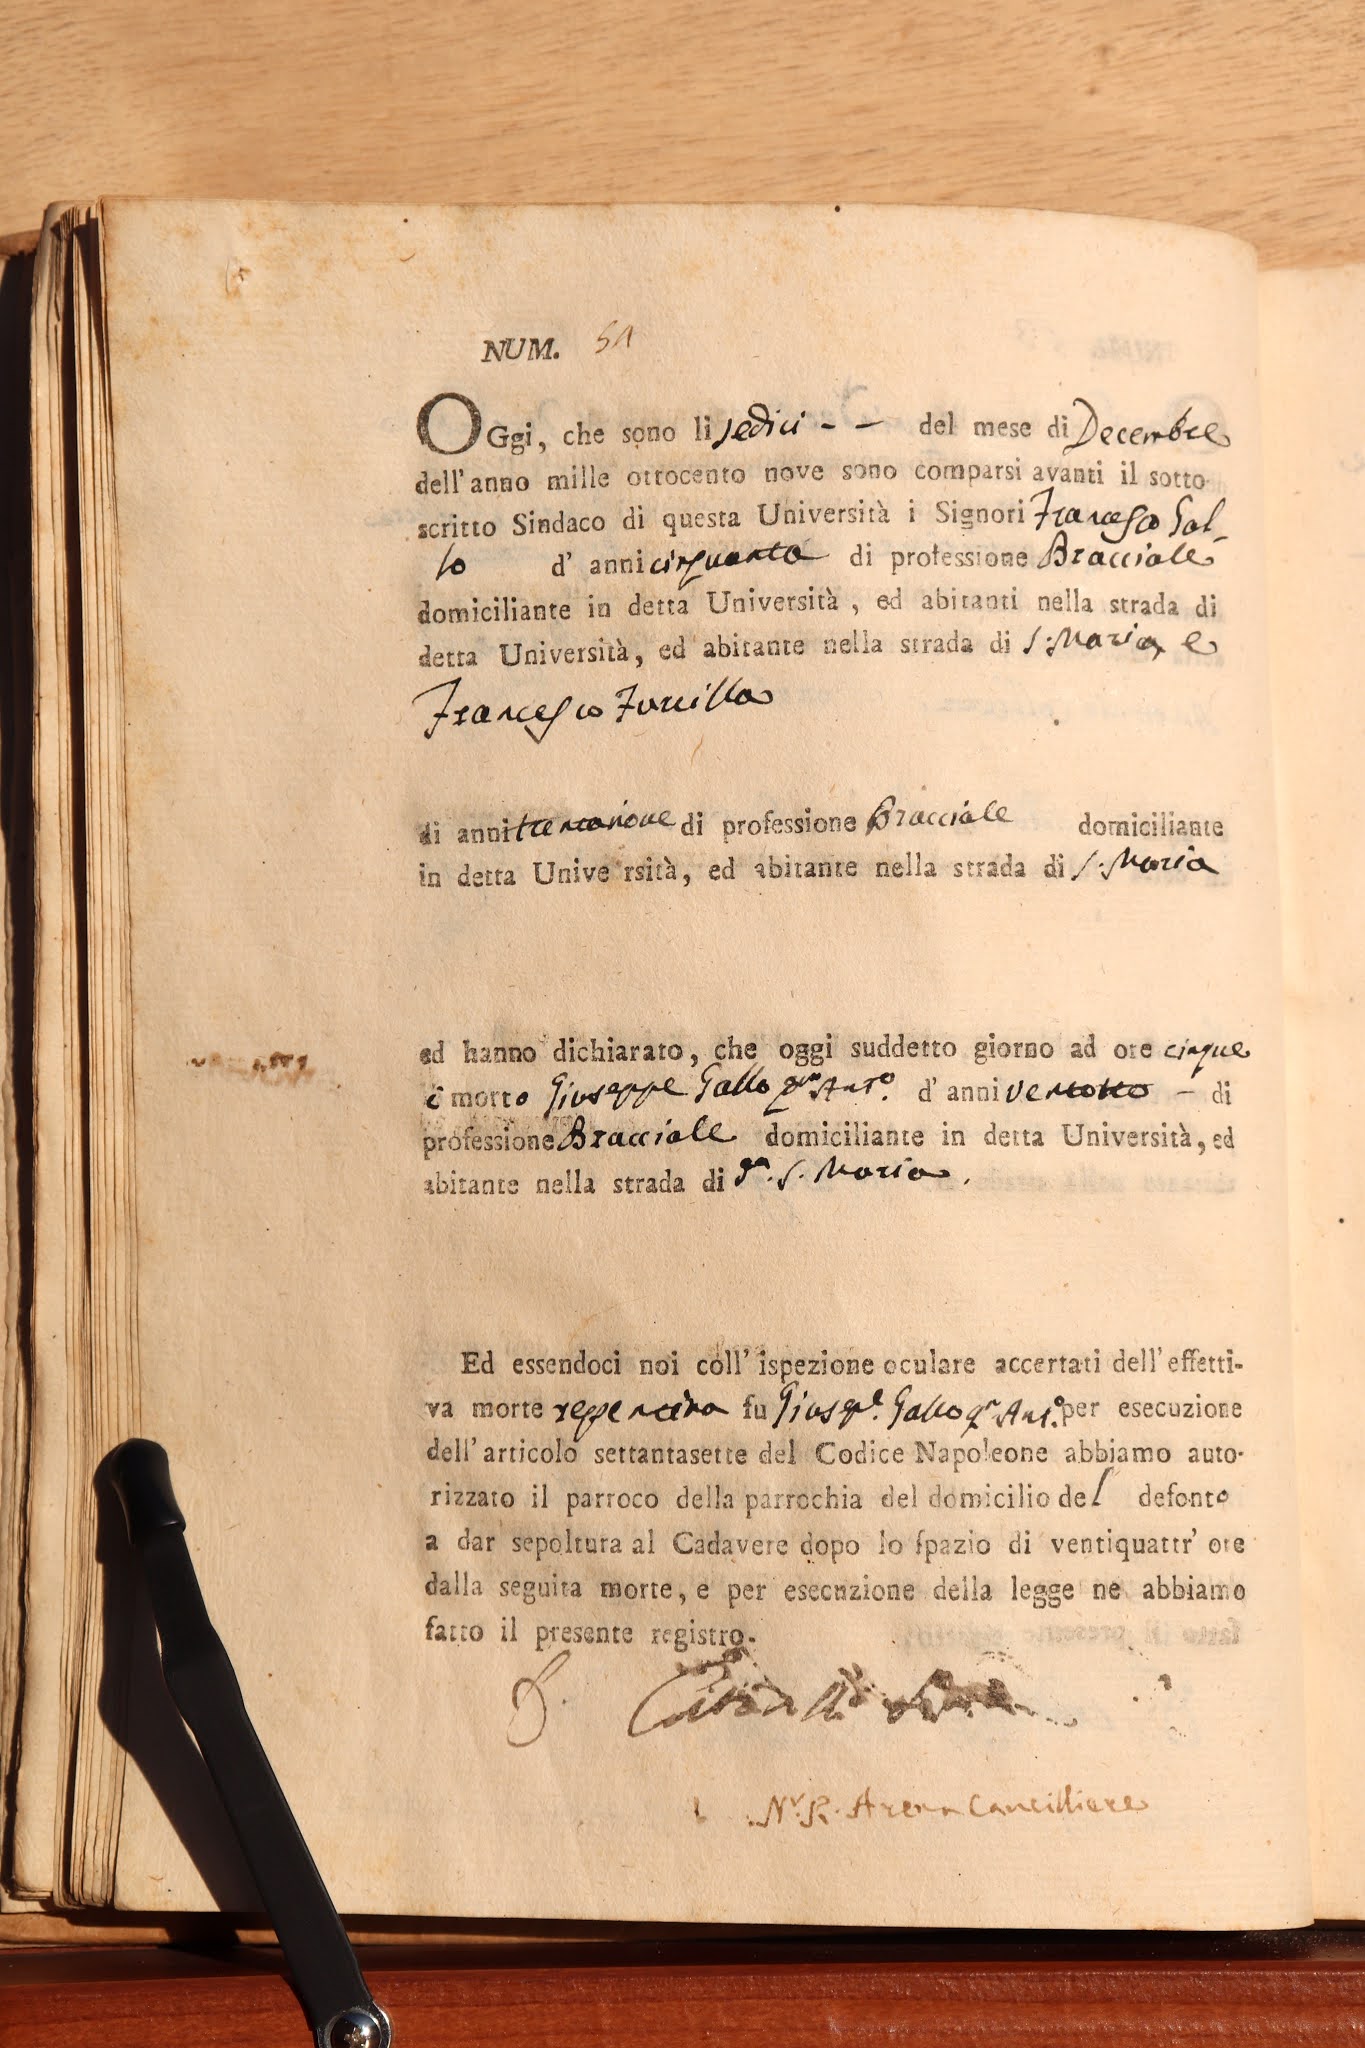 NUM. 51
OGgi, che sono li sedici - - del mese di Decembre
dell' anno mille ottocento nove sono comparsi avanti il sotto
scritto Sindaco di questa Università i Signori Francesco Gal-
lo d' anni cinquanta di professione Bracciale
domiciliante in detta Università, ed abitanti nella strada di
detta Università, ed abitante nella strada di S. Maria e
Francesco
di anni trentanove di professione Bracciale domiciliante
in detta Unive rsità, ed abitante nella strada di S. Maria
ed hanno dichiarato, che oggi suddetto giorno ad ore cinque
è morto Giuseppe Gallo qm. Anto. d' anni ventotto - di
professione Bracciale domiciliante in detta Università, ed
abitante nella strada di da. S. Maria.
Ed essendoci noi coll' ispezione oculare accertati dell' effetti-
va morte repentina fu Giuspe. Gallo qm. Anto. per esecuzione
dell' articolo settantasette del Codice Napoleone abbiamo auto-
rizzato il parroco della parrochia del domicilio del defonto
a dar sepoltura al Cadavere dopo lo spazio di ventiquattr' ore
dalla seguita morte, e per esecuzione della legge ne abbiamo
fatto il presente registro.
Nr. R. Arena Cancilliere